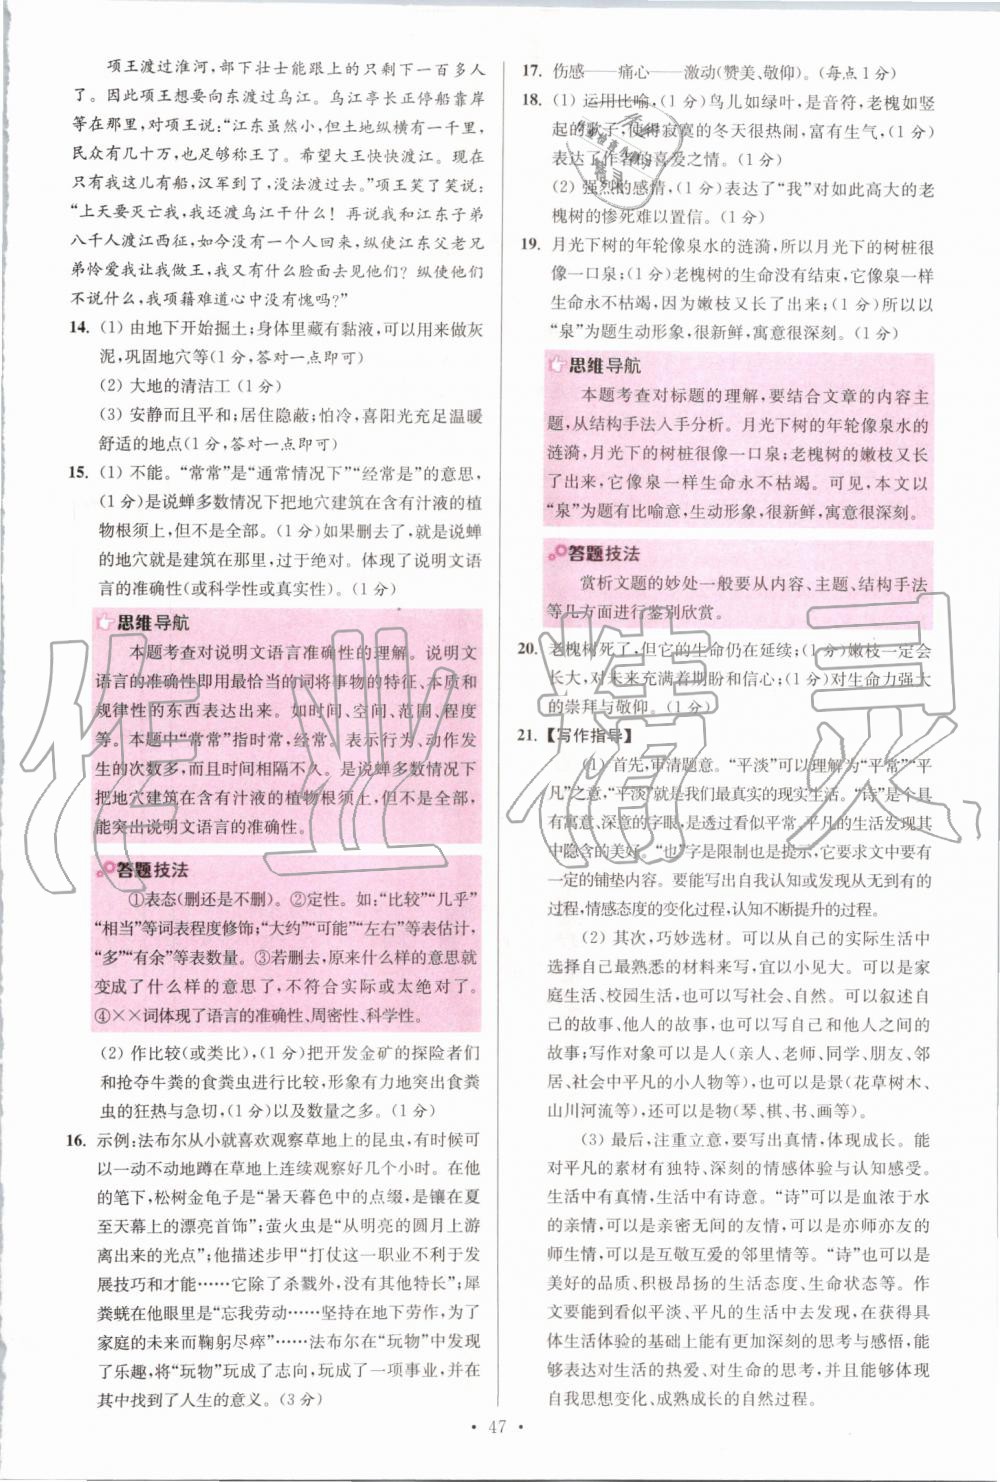 项王渡过淮河,部下壮士能跟上的只剩下一百多人
了。因此项王想要向东渡过乌江。乌江亭长正停船靠岸
等在那里,对项王说:“江东虽然小,但土地纵横有一千里,
民众有几十万,也足够称王了。希望大王快快渡江。现在
只有我这儿有船,汉军到了,没法渡过去。”项王笑了笑说:
“上天要灭亡我,我还渡乌江干什么!再说我和江东子弟
八千人渡江西征,如今没有一个人回来,纵使江东父老兄
弟怜爱我让我做王,我又有什么脸面去见他们?纵使他们
不说什么,我项籍难道心中没有愧吗?”
14. (1) 由地下开始掘土;身体里藏有黏液,可以用来做灰
泥,巩固地穴等(1分,答对一点即可)
(2) 大地的清洁工(1分)
(3) 安静而且平和;居住隐蔽;怕冷,喜阳光充足温暖
舒适的地点(1分,答对一点即可)
15. (1) 不能。“常常”是“通常情况下”“经常是”的意思,
(1分)是说蝉多数情况下把地穴建筑在含有汁液的植
物根须上,但不是全部。(1分)如果删去了,就是说蝉
的地穴就是建筑在那里,过于绝对。体现了说明文语
言的准确性(或科学性或真实性)。(1分)
思维导航
本题考查对说明文语言准确性的理解。说明文
语言的准确性即用最恰当的词将事物的特征、本质和
规律性的东西表达出来。如时间、空间、范围、程度
等。本题中“常常”指时常,经常。表示行为、动作发
生的次数多,而且时间相隔不久。是说多数情况下
把地穴建筑在含有汁液的植物根须上,但不是全部,
能突出说明文语言的准确性。
答题技法
①表态(删还是不删)。②定性。如:“比较”“几乎”
“相当”等词表程度修饰;“大约”“可能”“左右”等表估计,
“多”“有余”等表数量。③若删去,原来什么样的意思就
变成了什么样的意思了,不符合实际或太绝对了。
④××词体现了语言的准确性、周密性、科学性。
(2) 作比较(或类比),(1分)把开发金矿的探险者们
和抢夺牛粪的食粪虫进行比较,形象有力地突出食粪
虫的狂热与急切,(1分)以及数量之多。(1分)
16. 示例:法布尔从小就喜欢观察草地上的昆虫,有时候可
以一动不动地蹲在草地上连续观察好几个小时。在他
的笔下,松树金龟子是“暑天暮色中的点缀,是镶在夏
至天幕上的漂亮首饰”;萤火虫是“从明亮的圆月上游
离出来的光点”;他描述步甲“打仗这一职业不利于发
展技巧和才能……它除了杀戮外,没有其他特长”;犀
粪蜣在他眼里是“忘我劳动……坚持在地下劳作,为了
家庭的未来而鞠躬尽瘁”……法布尔在“玩物”中发现
了乐趣,将“玩物”玩成了志向,玩成了一项事业,并在
其中找到了人生的意义。(3分)
17. 伤感——痛心——激动(赞美、敬仰)。(每点1分)
18. (1) 运用比喻,(1分)鸟儿如绿叶,是音符,老槐如竖
起的歌子,使得寂寞的冬天很热闹,富有生气,(1分)
表达了作者的喜爱之情。(1分)
(2) 强烈的感情,(1分)表达了“我”对如此高大的老
槐树的惨死难以置信。(1分)
19. 月光下树的年轮像泉水的涟漪,所以月光下的树桩很
像一口泉;(1分)老槐树的生命没有结束,它像泉一样
生命永不枯竭,因为嫩枝又长了出来;(1分)所以以
“泉”为题生动形象,很新鲜,寓意很深刻。(1分)
思维导航
本题考查对标题的理解,要结合文章的内容主
题,从结构手法入手分析。月光下树的年轮像泉水的
涟漪,月光下的树桩很像一口泉;老槐树的嫩枝又长
了出来,它像泉一样生命永不枯竭。可见,本文以
“泉”为题有比喻意,生动形象,很新鲜,寓意很深刻。
答题技法
赏析文题的妙处一般要从内容、主题、结构手法
等几方面进行鉴别欣赏。
20. 老槐树死了,但它的生命仍在延续;(1分)嫩枝一定会
长大,对未来充满着期盼和信心;(1分)对生命力强大
的崇拜与敬仰。(1分)
21. 【写作指导】
(1) 首先,审清题意。“平淡”可以理解为“平常”“平
凡”之意,“平淡”就是我们最真实的现实生活。“诗”是个具
有寓意、深意的字眼,是透过看似平常、平凡的生活发现其
中隐含的美好。“也”字是限制也是提示,它要求文中要有
一定的铺垫内容。要能写出自我认知或发现从无到有的
过程,情感态度的变化过程,认知不断提升的过程。
(2) 其次,巧妙选材。可以从自己的实际生活中
选择自己最熟悉的材料来写,宜以小见大。可以是家
庭生活、校园生活,也可以写社会、自然。可以叙述自
己的故事、他人的故事,也可以写自己和他人之间的故
事;写作对象可以是人(亲人、老师、同学、朋友、邻
居、社会中平凡的小人物等),也可以是景(花草树木、
山川河流等),还可以是物(琴、棋、书、画等)。
(3) 最后,注重立意,要写出真情,体现成长。能
对平凡的素材有独特、深刻的情感体验与认知感受。
生活中有真情,生活中有诗意。“诗”可以是血浓于水
的亲情,可以是亲密无间的友情,可以是亦师亦友的
师生情,可以是互敬互爱的邻里情等。“诗”也可以是
美好的品质、积极昂扬的生活态度、生命状态等。作
文要能到看似平淡、平凡的生活中去发现,在获得具
体生活体验的基础上能有更加深刻的思考与感悟,能
够表达对生活的热爱、对生命的思考,并且最终体现
自我思想变化,成熟成长的自然过程。
• 47 •
作业精灵